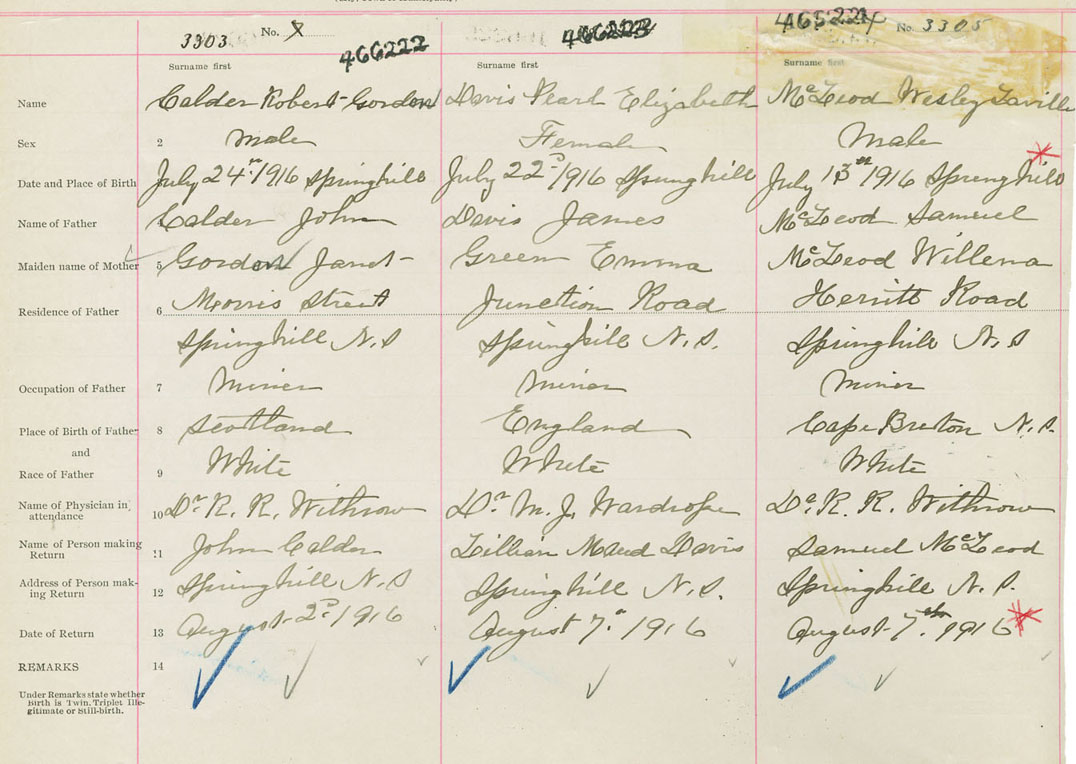 3303 No. X 466222
466223
465224 No. 3305
Surname first Surname first Surname first
Name Calder Robert Gordon Davis Pearl Elizabeth McLeod Wesley
Sex 2 Male Female Male
Date and Place of Birth July 24th 1916 Springhill July 22d 1916 Springhill July 13th 1916 Springhill
Name of Father Calder John Davis James McLeod Samuel
Maiden name of Mother 5 Gordon Janet Green Emma McLeod Willena
Residence of Father 6 Morris Street Junction Road Herritt Road
Springhill N.S Springhill N.S. Springhill N.S
Occupation of Father 7 Miner Miner Miner
Place of Birth of Father 8 Scotland England Cape Breton N.S.
and
Race of Father 9 White White White
Name of Physician in
attendance 10 Dr R. R. Withrow Dr M. J. Wardrope Dr. R. R. Withrow
Name of Person making
Return 11 John Calder Lillian Maud Davis Samuel McLeod
Address of Person mak-
ing Return 12 Springhill N.S Springhill N.S. Springhill N.S.
Date of Return 13 August 2d. 1916 August 7. 1916 August 7th. 1916
REMARKS 14
Under Remarks state whether
Birth is Twin, Triplet Ille-
gitimate or Still-birth.